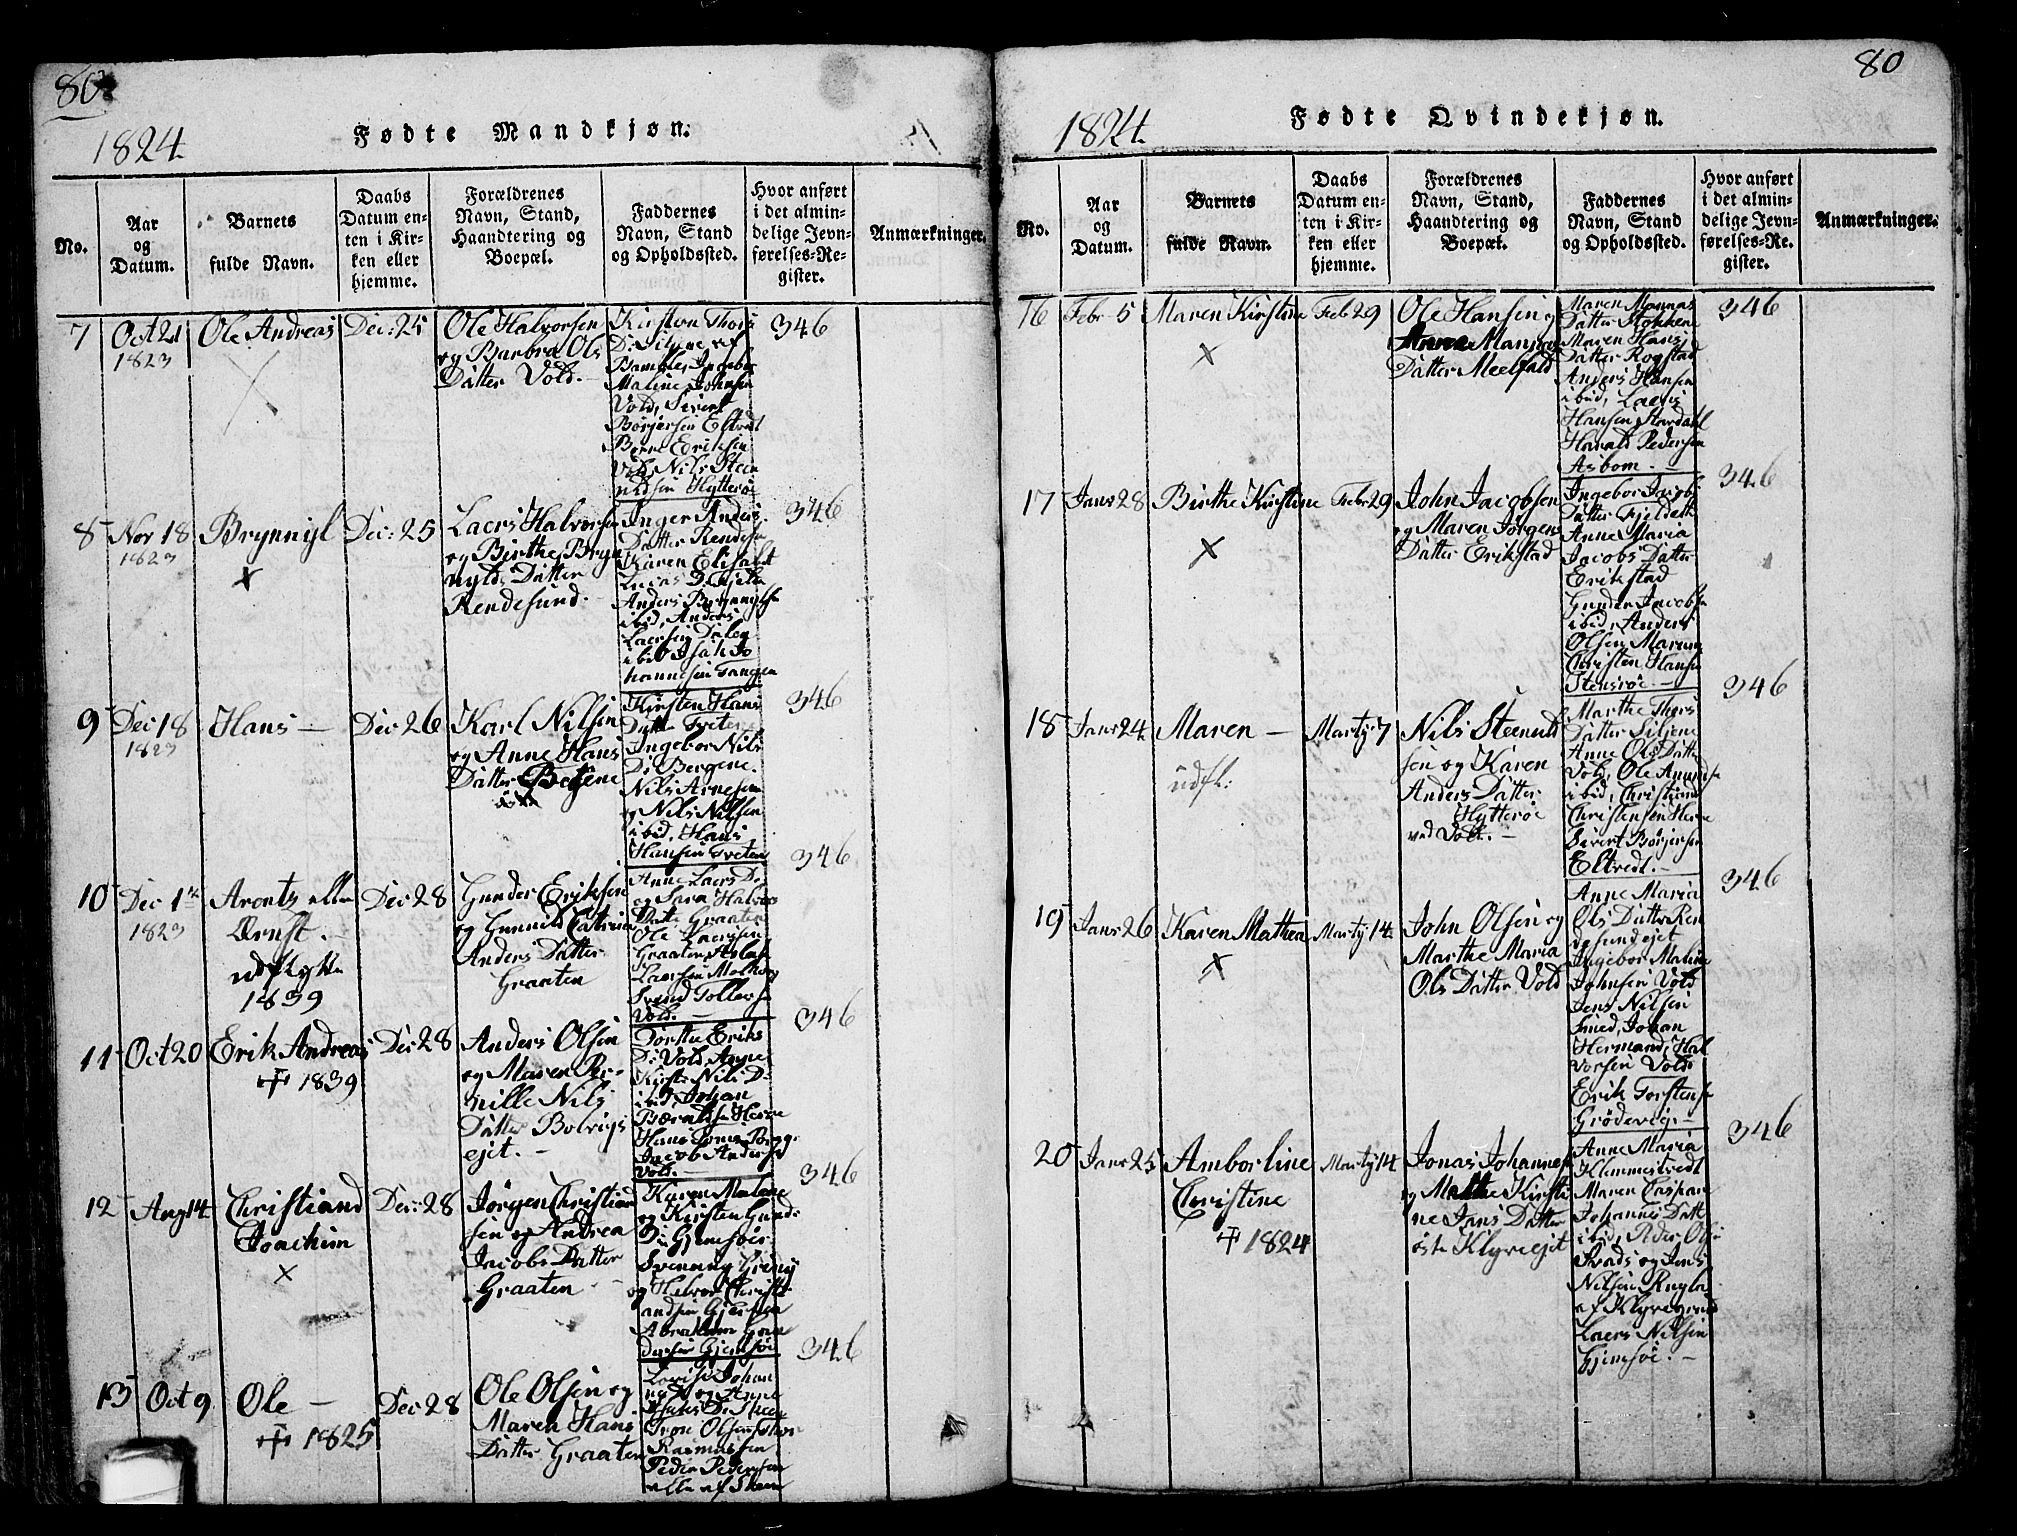 80
1824.
Fødte Mandkjøn.
No.
Aar
og
Datum.
Barnets
fulde Navn.
Daabs
Datum en-
ten i Kir-
ken eller
hjemme.
Forældrenes
Navn, Stand,
Haandtering og
Boepæl.
Faddernes
Navn, Stand
og Opholdssted.
Hvor anført
i det almin-
delige Jevn-
førelses-Re-
gister.
Anmærkninger.
7
Oct 21
1823
Ole Andreas
Dec: 25
Ole Halvorsen
og Barbra Ols
Datter Vold. -
Kirsten Thors
Bamble, Ingebor
Maline Johnsen
Vold, Sivert
Børjersen Eltvedt
Erichsen
Nils Steen
Hytterøe
346
8
Nov 18
1823
Brynnyl
Dec: 25
Laers Halvorsen
og Birthe Bryn
nylds Datter
Rendesund. -
Inger Anders
Datter Rendesun
Karen Elisabt
Anders Brynnyls
ibid, Anders
Laersen
ibid Isak Jo
hannesen Tangen
346
9
Dec 18
1823
Hans -
Dec: 26
Karl Nilsen
og Anne Hans
Datter
Kirsten Hans
Datter Tveten
Ingebor Nils
D: Bergene.
Nils Arnesen
og Nils Nilsen
ibid, Hans
Hansen Tveten
346
10
Dec 1
1823
Aronts eller
Ærnst.
udflytte
1839
Dec: 28
Gunder Eriksen
og Gunnild Catrina
Anders Datter
Graaten
Anne Laers D:
og Sara Halvors
Datte Graaten
Ole Laersen
Graaten
Laersen
Svend Tollefs
Vold. -
346
11
Oct 20
Erik Andreas
+ 1839
Dec: 28
Anders Olsen
og Maren Per-
nille Nils
Datter Bolvigs
ejet. -
Dorthe Eriks
D: Vold, Anne
Kirst. Nils D:
ibid, Johan
Herre
Hans
Jacob Anders
Vold. -
346
12
Aug 14
Christiand
Joachim
Dec: 28
Jørgen Christiand
sen og Andrea
Jacobs Datter
Graaten -
Karen Malene
og Kirsten Gund
D: Gjemsøe
Svennug
og Halvor Christi
andsen Gjemsøe
Abraham Gun
dersen Gjemsøe
346
13
Oct 9
Ole -
+ 1825
Dec: 28
Ole Olsen og
Maren Hans
Datter Graaten
Lovise Johan
og Anne
Isaks D: Skeen
Tron Olsen
Rasmussen
Peder Pedersen
alle af Skeen
80
1824.
Fødte Qvindekjøn.
No.
Aar
og
Datum.
Barnets
fulde Navn.
Daabs
Datum en-
ten i Kir-
ken eller
hjemme.
Forældrenes
Navn, Stand,
Haandtering og
Boepæl.
Faddernes
Navn, Stand
og Opholdssted.
Hvor anført
i det almin-
delige Jevn-
førelses-Re-
gister.
Anmærkninger.
16
Febr 5
Maren Kirstine
Feb 29
Ole Hansen og
Datter Meelfald
Maren Monnas
Datter Stokkene
Maren Hans
Datter Rogstad
Anders Hansen
ibid, Laers
Hansen Stordahl
Harald Pedersen
Asbom. -
346
17
Janr 28
Birthe Kirstine
Febr 29
John Jacobsen
og Maren Jørgens
Datter Erikstad
Ingebor Jacobs
Datter Fjeldet
Anne Maria
Jacobs Datter
Erikstad
Gunder Jacobsen
ibid, Anders
Olsen Marum
Christen Hansen
Stensrøe. -
346
18
Janr 24.
Maren -
udfl:
Martj 7
Nils Steenuld
sen og Karen
Anders Datter
Hytterøe
ved Vold. -
Marthe Thors
Datter Siljene
Anne Ols Datter
Vold, Ole Amunds
ibid, Christiand
Christensen Herre
Sivert Børjersen
Eltvedt. -
346
19
Janr 26
Karen Mathea
Martj 14.
John Olsen og
Marthe Maria
Ols Datter Vold
Anne Maria
Ols Datter Ren
desundejet
Ingebor Maline
Johnsen Vold
Jens Nilsen
Smed, Johan
Hermand, Hal
vorsen Vold
Erik Torstens
Grødevig. -
346
20
Janr 25
Amborline
Christine
+ 1824
Martj 14.
Jonas Johannes
og Marthe Kirsti
ne Jans Datter
øste Klyveejet
Anne Maria
Klemmetsvedt
Maren Caspare
Johannes Datt
ibid, Peder Ols
og Jens
Nilsen
af Klyvegrund
Laers Nilsen
Gjemsøe. -
346